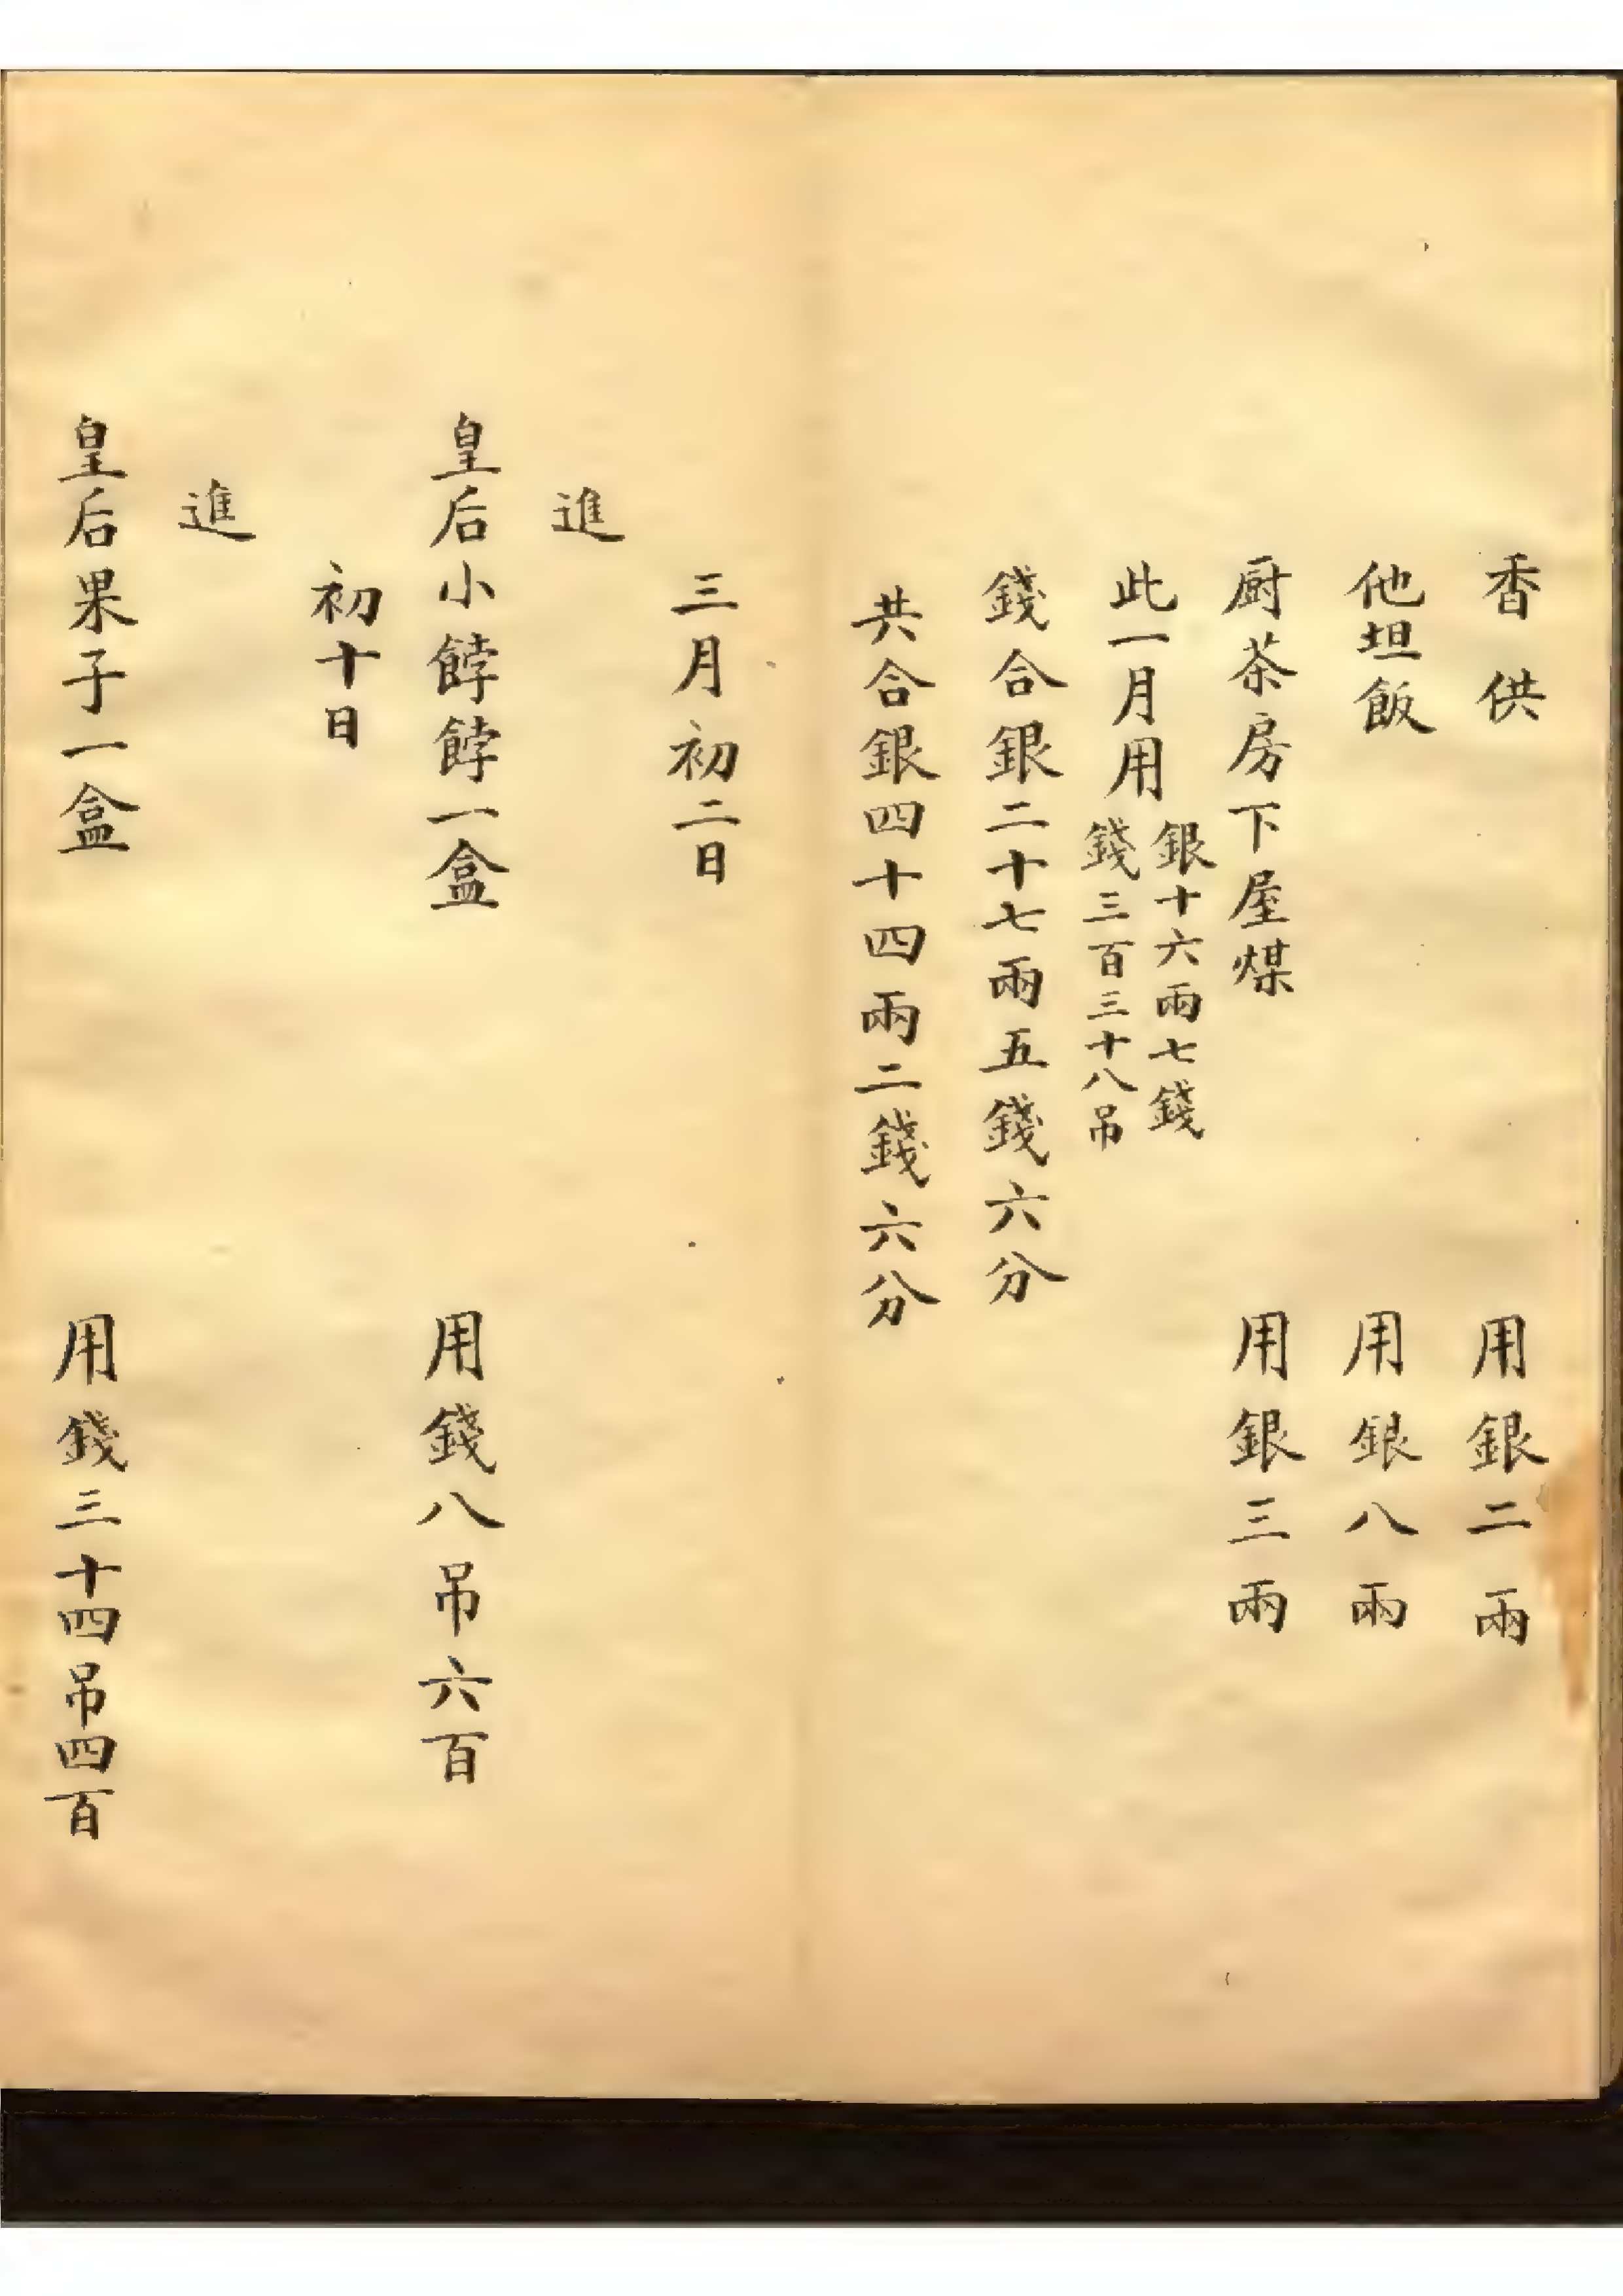 香供　用銀二兩
他坦飯　用銀八兩
厨茶房下屋煤　用銀三兩
此一月用銀十六兩七錢
錢三百三十八吊
錢合銀二十七兩五錢六分
共合銀四十四兩二錢六分
三月初二日
進
皇后小餑餑一盒　用錢八吊六百
初十日
進
皇后果子一盒　用錢三十四吊四百